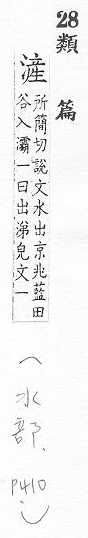 28類篇
滻
所簡切説文水出京兆藍田
谷入灞一曰出涕皃文一
(水部、P410)